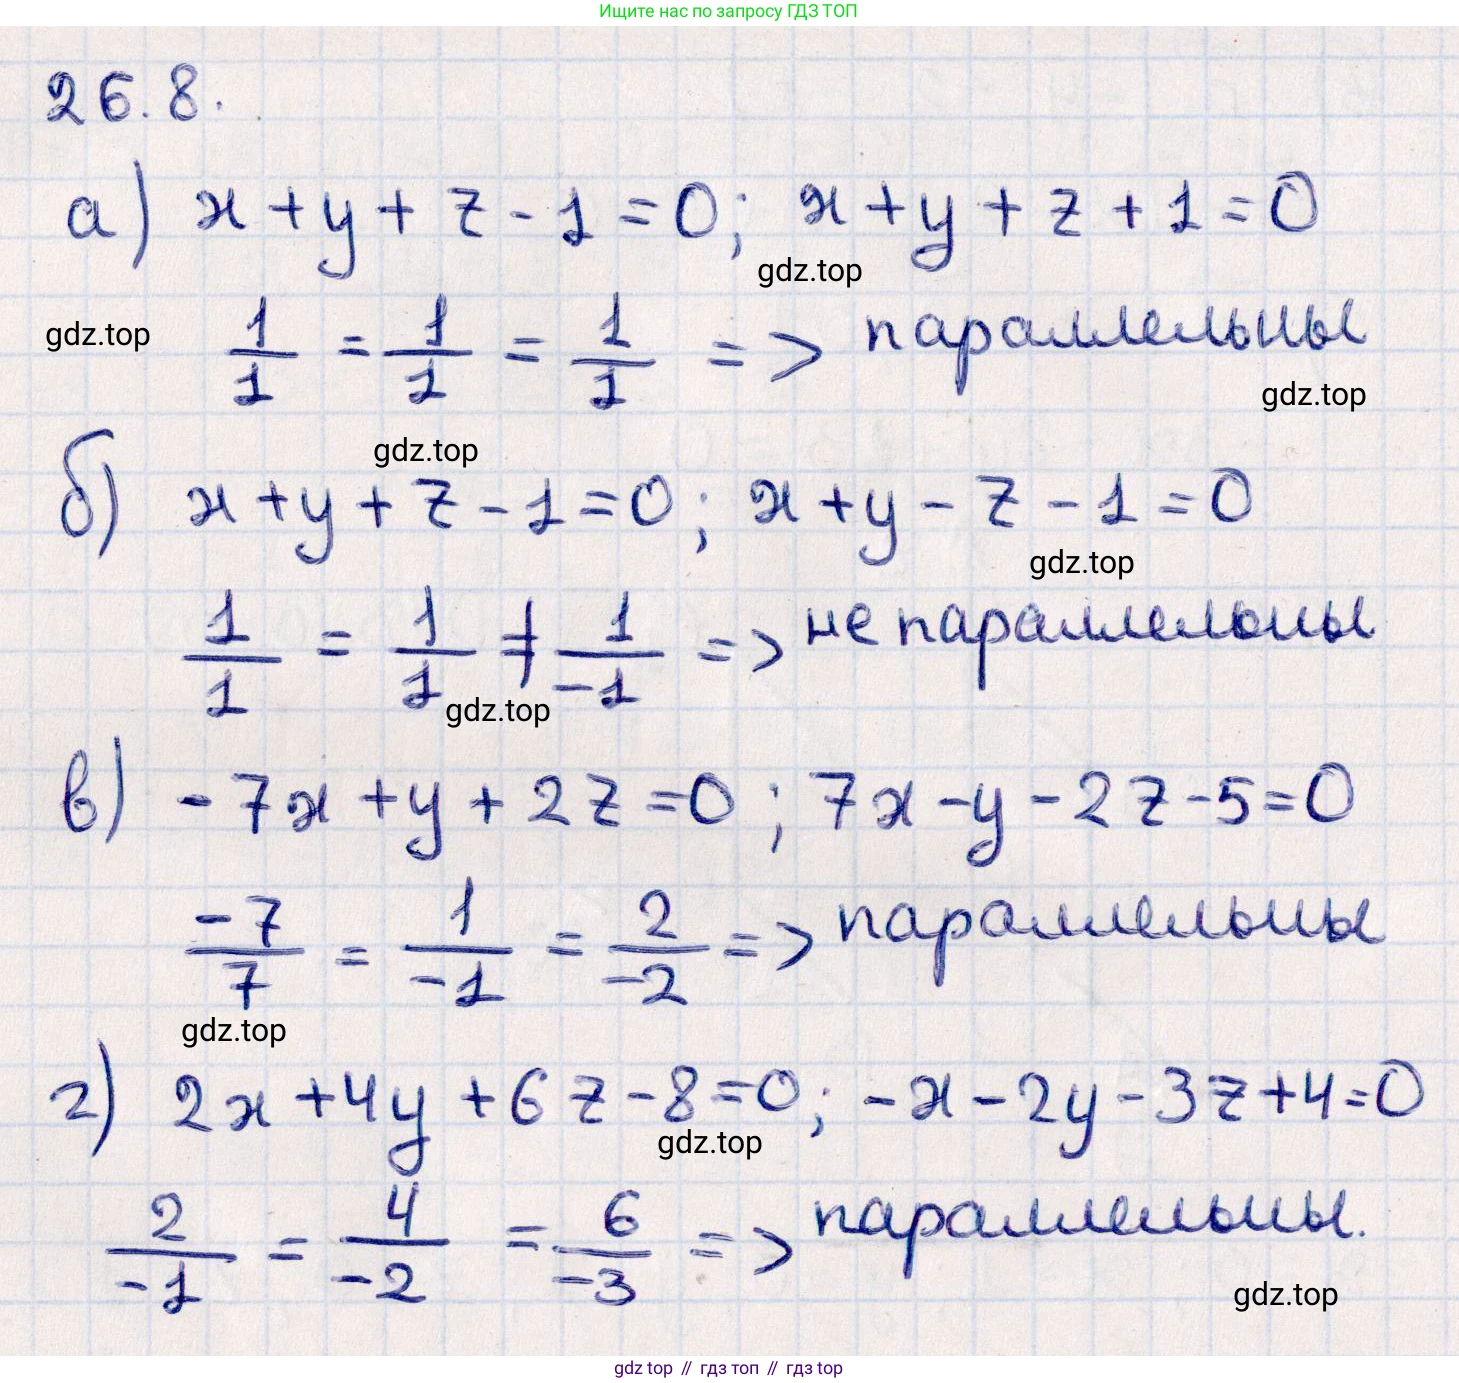 Ищите нас по запросу ГДЗ ТОП
26.8.
а) x + y + z - 1 = 0; x + y + z + 1 = 0
gdz.top
gdz.top
1/1 = 1/1 = 1/1 => параллельны
gdz.top
gdz.top
б) x + y + z - 1 = 0; x + y - z - 1 = 0
gdz.top
1/1 = 1/1 ≠ 1/-1 => не параллельны
gdz.top
в) -7x + y + 2z = 0; 7x - y - 2z - 5 = 0
-7/7 = 1/-1 = 2/-2 => параллельны
gdz.top
г) 2x + 4y + 6z - 8 = 0; -x - 2y - 3z + 4 = 0
gdz.top
2/-1 = 4/-2 = 6/-3 => параллельны.
gdz.top
gdz top // гдз топ // гдз top